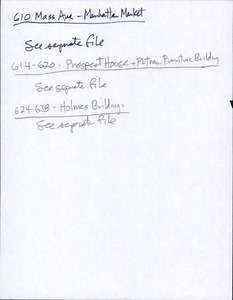 610 Mass Ave - Manhattan Market
See separate file
614-620 - Prospect House + Putnam Furniture Building
See separate file
624-638 - Holmes Building.
See separate file